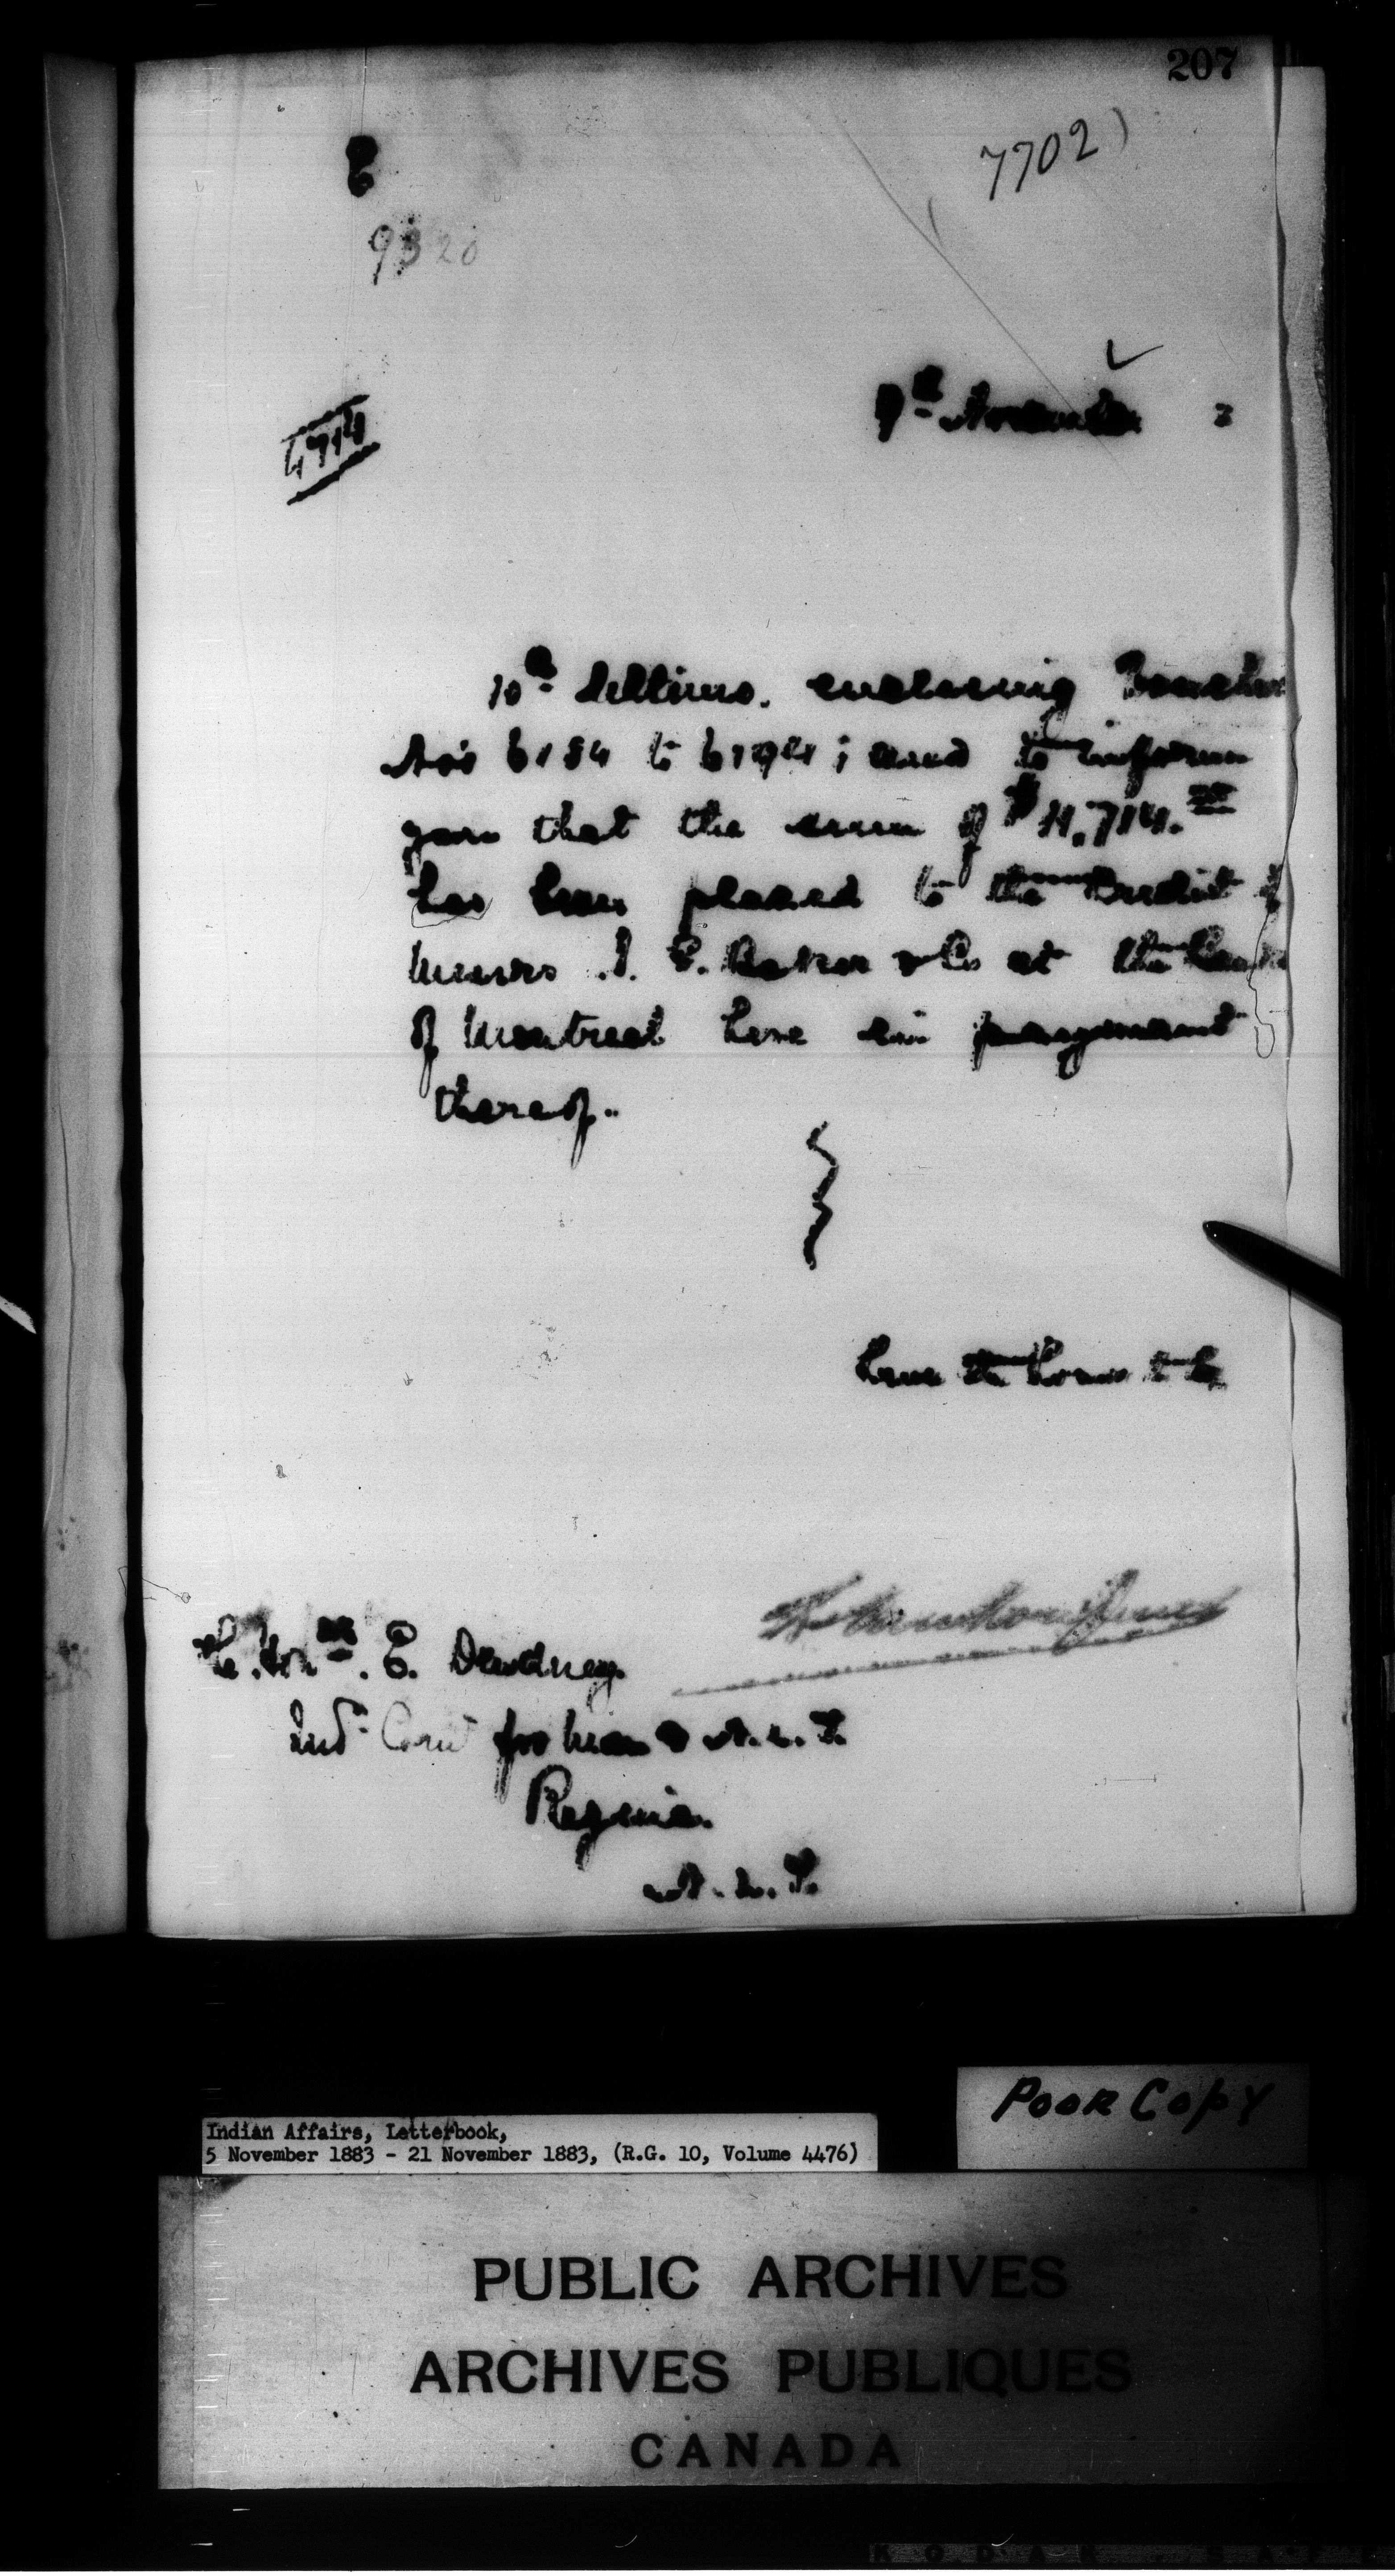 207
7702
E
9320
9th November 3
4714
10th Ultimo, enclosing Vouchers
Nos 6184 to 6194; and to inform
you that the sum of $4,714.
has been placed to the credit of
Messrs I. G. Baker & Co at the Bank
of Montreal here in payment
thereof.
have the honor to be
E. Dewdney
Ind. Comr for Man & N.W.T.
Regina.
N.W.T.
POOR COPY
Indian Affairs, Letterbook,
5 November 1883 - 21 November 1883, (R.G. 10, Volume 4476)
PUBLIC ARCHIVES
ARCHIVES PUBLIQUES
CANADA